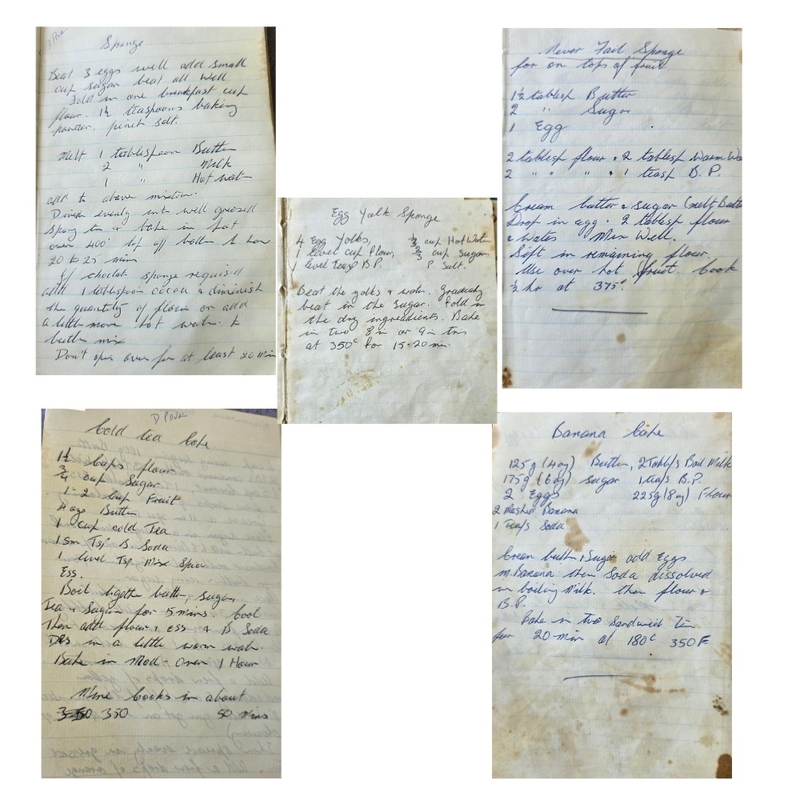 Sponge
Beat 3 eggs well add small
cup sugar beat all well
Fold in one breakfast cup
flour. 1½ teaspoons baking
powder, pinch salt.
Melt 1 tablespoon Butter
2 " Milk
1 " Hot water
add to above mixture.
Divide evenly into well greased
oven 400° top off bottom ½ hour
20 to 25 min
If choclat sponge required
add 1 tablespoon cocoa & diminish
the quantity of flour or add
a little more hot water to
butter mix
Don't open oven for at least 20 min
Never Fail Sponge
for on tops of fruit
1½ tablesp Butter
2 " Sugar
1 Egg
2 tablesp flour & 2 tablesp warm Wa
2 " " & 1 teasp B.P.
Cream butter & sugar (melt Butte
Drop in egg. 2 tablesp flour
& water Mix Well.
Sift in remaining flour.
Use over hot fruit. Cook
½ hr at 375°.
Egg Yolk Sponge
4 Egg Yolks, cup Hot Water
1 level cup flour, ⅔ cup Sugar
1 level teasp B.P. P. Salt.
Beat the yolks & water. Gradually
beat in the sugar. Fold in
the dry ingredients. Bake
in two 8in or 9in tins
at 350° for 15-20 min
Cold tea Cake
1½ Cups flour
¾ cup Sugar
1-2 cup Fruit
4 ozs Butter
1 cup cold Tea
1 sm Tsp B Soda
1 level Tsp Mix Spice
Ess.
Boil together butter, sugar,
Tea & Sugar for 5 mins. Cool
Then add flour & ess & B Soda
Dis in a little warm water
Bake in Mod. Oven 1 Hour
Mine Cooks in about
350 50 mins
Banana Cake
125g (4 oz) Butter, 2 Tabl/s Boil Milk
175g (6 oz) Sugar 1 tea/s B.P.
2 Eggs 225g (8 oz) Flour
2 Mashed Banana
1 Tea/s Soda
Cream butter, Sugar add Eggs
m. Banana then Soda dissolved
in boiling Milk. then flour &
B.P.
Bake in two Sandwich Tin
for 20 min at 180°c 350 F